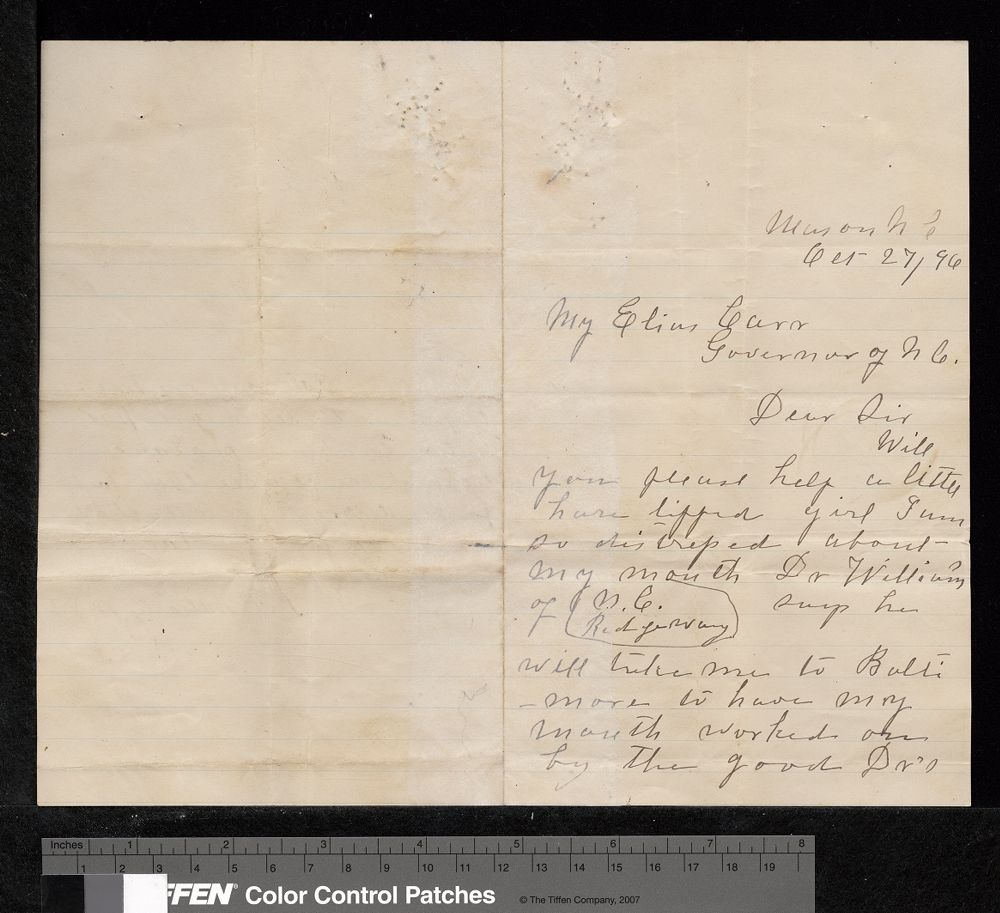 Mason N C
Oct 27/96
My Elias Carr
Governor of N C.
Dear Sir
Will
you please help a little
hare lipped girl I am
so distressed about
my mouth Dr William's
of N.C. says he
Ridgeway
will take me to Balti
-more to have my
mouth worked on
by the good Dr's
Inches 1 2 3 4 5 6 7 8
1 2 3 4 5 6 7 8 9 10 11 12 13 14 15 16 17 18 19
FFEN® Color Control Patches © The Tiffen Company, 2007